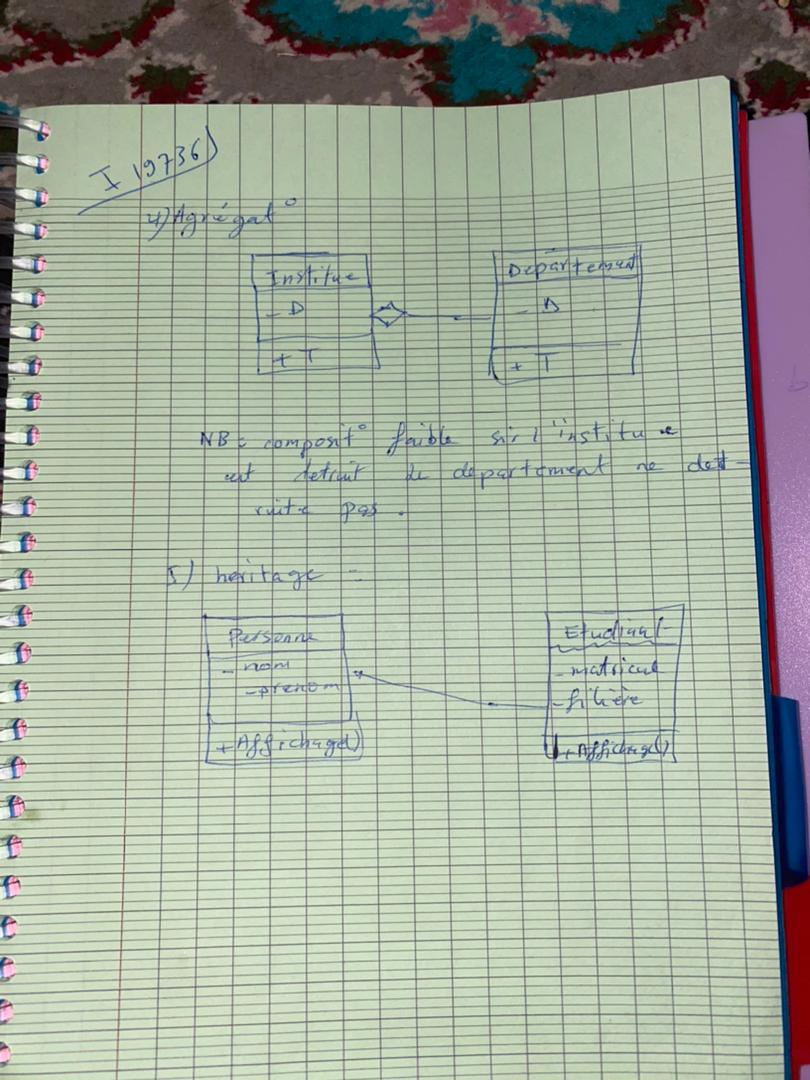 I 19736)
4) Agrégat°
Institue
- D
+ T
Département
- D
+ T
NB : composit° faible si l'institue
est detruit le departement ne det-
ruite pas.
5) heritage :
Personne
- nom
- prenom
+ Affichage()
Etudiant
- matricul
- filière
+ Affichage()